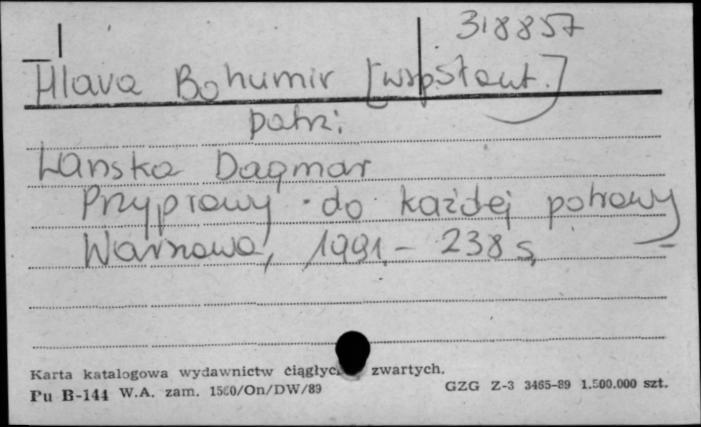 318857
Hlava Bohumir [wspsłaut.]
patrz:
Lánska Dagmar
Przyprawy do każdej potrawy
Warszawa, 1991.- 238 s.
Karta katalogowa wydawnictw ciągłyc zwartych.
Pu B-144 W.A. zam. 1560/On/DW/89
GZG Z-3 3465-89 1.500.000 szt.